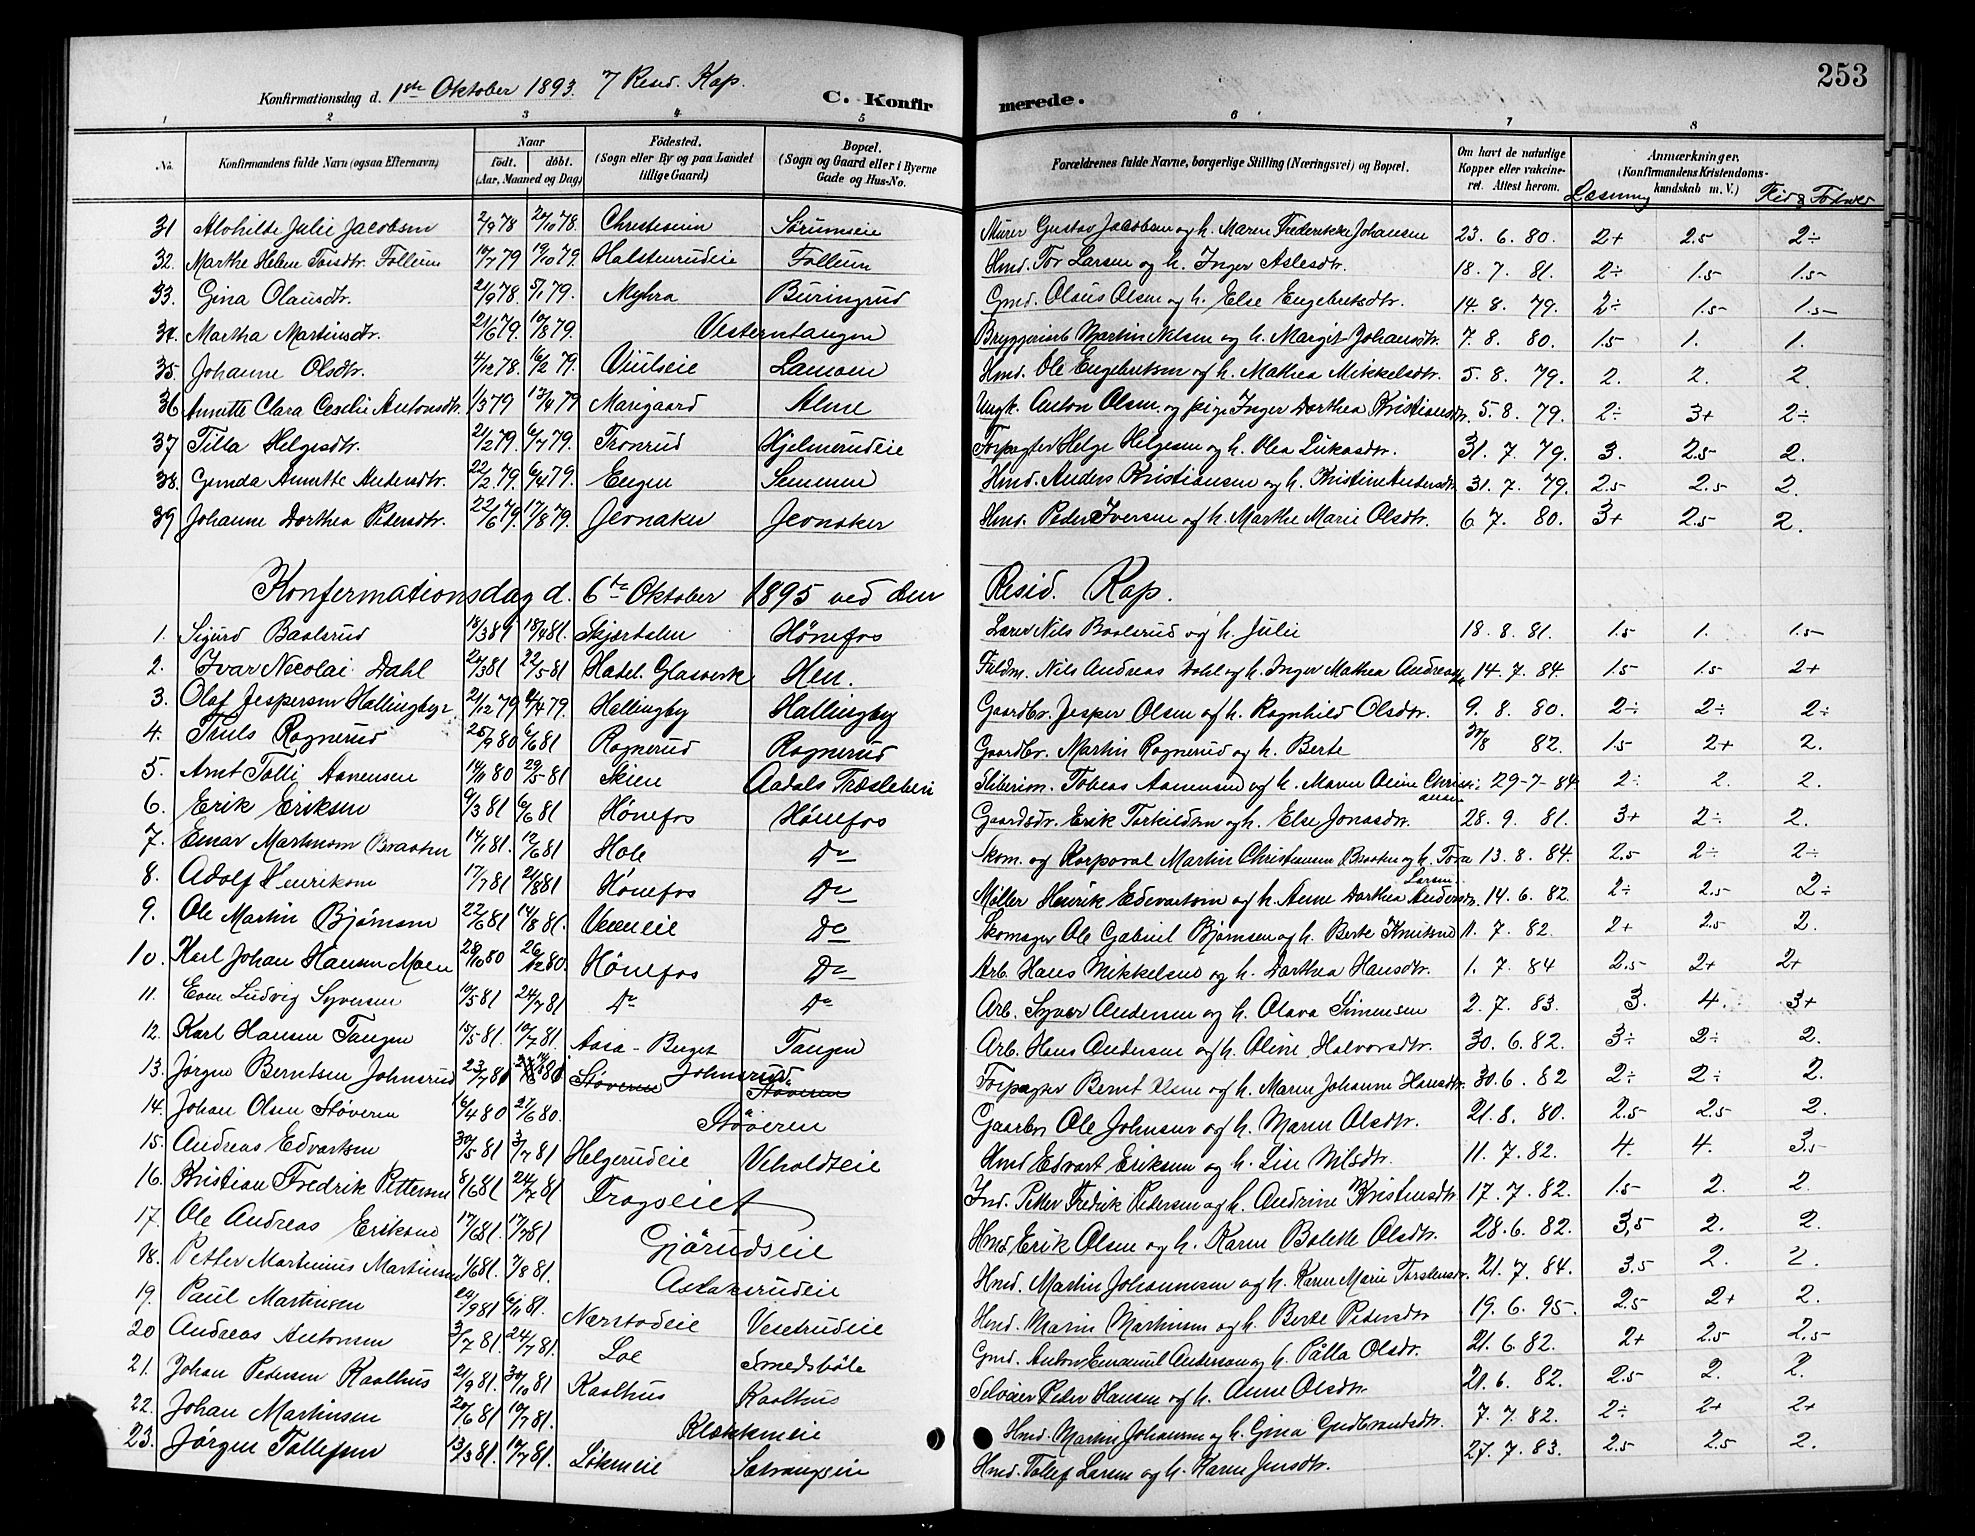 253
Konfirmationsdag d. 1ste Oktober 1893. 7 Resd. Kap. C. Konfirmerede.
1 2 3 4 5 6 7 8
No. Konfirmandens fulde Navn (ogsaa Efternavn) Naar födt. döbt. (Aar, Maaned og Dag) Födested. (Sogn eller By og paa Landet tillige Gaard) Bopæl. (Sogn og Gaard eller i Byerne Gade og Hus-No. Forældrenes fulde Navne, borgerlige Stilling (Næringsvei) og Bopæl. Om havt de naturlige Kopper eller vakcineret. Attest herom. Anmærkninger. (Konfirmandens Kristendomskundskab m. V.) Læsning Flid &
31 Alvhilde Julie Jacobsen 2/9 78 20/10 78. Sörumseie Murer Gustav Jacobsen og h. Maren Frederikke Johansen 23. 6. 80. 2+ 2.5 2÷
32. Marthe Helene Torsdtr. Follum 10/7 79 19/10 79. Halstenrudeie Follum Hmd. Tor Larsen og h. Inger Aslesdtr. 18. 7. 81. 2÷ 1.5 1.5
33. Gina Olausdtr. 21/9 78. 5/1 79. Myhra Buringrud Gmd. Olaus Olsen og h. Else Engebretsdtr. 14. 8. 79. 2÷ 1.5 1.5
34. Martha Martinsdtr. 21/6 79. 10/8 79. Vesterntangen Bryggeriarb Martin Nilsen og h. Margit Johansdtr. 7. 8. 80. 1.5 1. 1.
35. Johanne Olsdtr. 4/12 78. 16/2 79. Viulseie Lamoen Hmd. Ole Engebretsen og h. Mathea Mikkelsdtr. 5. 8. 79. 2. 2. 2.
36 Annette Clara Cecilie Antonsdtr. 1/3 79 13/4 79 Marigaard Alme Ungk. Anton Olsen og pige Inger Dorthea Kristiansdtr. 5. 8. 79. 2÷ 3+ 2÷
37 Tilla Helgesdtr. 21/2 79. 6/7 79. Tronrud Hjelmerudeie Forpagter Helge Helgesen og h. Olea Lukasdtr. 31. 7. 79. 3. 2.5 2.
38. Gunda Annette Andersdtr. 22/2 79. 6/4 79. Engen Semmen Hmd. Anders Kristiansen og h. Kristine Andersdtr. 31. 7. 79. 2.5 2.5 2.
39 Johanne Dorthea Pedersdtr. 22/6 79. 17/8 79. Jevnaker Jevnaker Hmd. Peder Iversen og h. Marthe Marie Olsdtr. 6. 7. 80. 3+ 2.5 2.
Konfermationsdag d. 6te Oktober 1895 ved den Resid. Kap.
1. Sigurd Baalsrud 18/3 81 18/4 81. Skjærdalen Hönefos Lærer Nils Baalsrud og h. Julie 18. 8. 81. 1.5 1. 1.5
2. Ivar Nicolai Dahl 2/3 81 22/5 81 Hadel. Glasverk Hen. Fuldm. Nils Andreas Dahl og h. Inger Mathea 14. 7. 84. 1.5 1.5 2+
3. Olaf Jespersen Hallingby 21/12 79 6/4 79. Hallingby Hallingby Gaardbr. Jesper Olsen og h. Ragnhild Olsdtr. 9. 8. 80. 2÷ 2÷ 2÷
4. Truls Rognerud 25/9 80 6/6 81 Rognerud Rognerud Gaardbr. Martin Rognerud og h. Berte 30/8 82. 1.5 2+ 2.
5. Arnt Tolli Aanensen 14/11 80 29/5 81 Skien Aadals Træsleberi Sliberiom. Tobias Aanensen og h. Maren Oline Christiansen 29-7-84 2÷ 2. 2.
6. Erik Eriksen 9/3 81 6/6 81 Hönefos Hönefos Gaardsdr. Erik Torkildsen og h. Else Jonasdtr. 28. 9. 81. 3+ 2÷ 2.
7. Einar Martinsen Braaten 14/1 81. 12/6 81 Hole Do Skom. og Korporal Martin Christiansen Braaten og h. Tora Larsen 13. 8. 84. 2.5 2÷ 2÷
8. Adolf Henriksen 17/7 81 21/8 81 Hönefos Do Møller Henrik Edevartsen og h. Anne Dorthea Andersdtr. 14. 6. 82. 2÷ 2.5 2÷
9. Ole Martin Bjørnsen 22/6 81 14/8 81. Veieneie Do Skomager Ole Gabriel Bjørnsen og h. Berte Knutsen 11. 7. 82. 2+ 2.5 2.
10. Karl Johan Hansen Moen 28/10 80 26/12 80. Hönefos Do Arb. Hans Mikkelsen og h. Dorthea Hansdtr. 1. 7. 84 2.5 2+ 2+
11. Even Ludvig Syversen 10/5 81 24/7 81 Do Do Arb. Syver Andersen og h. Olava Simensen 2. 7. 83. 3. 4. 3+
12. Karl Hansen Tangen 15/5 81. 10/7 81. Aasa-Berget Tangen Arb. Hans Andersen og h. Oline Halvorsdtr. 30. 6. 82. 3÷ 2÷ 2.
13. Jörgen Berntsen Johnsrud 23/7 81 Støveren Johnsrud Støveren Forpagter Bernt Olsen og h. Maren Johanne Hansdtr. 30. 6. 82 2÷ 2÷ 2.
14. Johan Olsen Støveren 16/4 80 27/6 80. Støveren Gaarbr. Ole Johnsen og h. Maren Olsdtr. 21. 8. 80. 2.5 2.5 2.
15. Andreas Edvartsen 30/5 81 3/7 81 Helgerudeie Veholdteie Hmd Edvart Eriksen og h. Lise Nilsdtr. 11. 7. 82. 4. 4. 3.5
16. Kristian Fredrik Pettersen 8/6 81 24/7 81 Trogseiet Ind. Petter Fredrik Pedersen og h. Andrine Kristensdtr. 17. 7. 82. 1.5 2. 2.
17. Ole Andreas Eriksen 17/6 81. 17/7 81 Gjörudseie Hmd. Erik Olsen og h. Karen Bolette Olsdtr. 28. 6. 82. 3,5 2. 2.
18. Petter Martinius Martinsen 1/6 81. 7/8 81. Aslaksrudeie Hmd. Martin Johannesen og h. Karen Marie Torstensdtr. 21. 7. 84. 3.5 2. 2.
19. Paul Martinsen 24/9 81 6/11 81. Nærstadeie Vesetrudeie Hmd. Martin Martinsen og h. Berte Pedersdtr 19. 6. 95. 2.5 2+ 2.
20 Andreas Antonsen 3/7 81. 24/7 81. Loe Smedsböle Gmd. Anton Emanuel Anderson og h. Pålla Olsdtr. 21. 6. 82. 2+ 2.5 2.5
21. Johan Pedersen Kaalhus 21/9 81. 30/10 81 Kaalhus Kaalhus Selveier Peder Hansen og h. Anne Olsdtr. 21. 6. 82. 2.5 2. 2.
22. Johan Martinsen 20/6 81 10/7 81. Klækkeneie Hmd. Martin Johansen og h. Gina Gudbrandsdtr. 7. 7. 82. 2÷ 2+ 2+
23. Jörgen Tollefsen 13/3 81. 10/7 81. Lökeneie Hmd. Tollef Larsen og h. Karen Jensdtr. 27. 7. 83. 2.5 2.5 2.